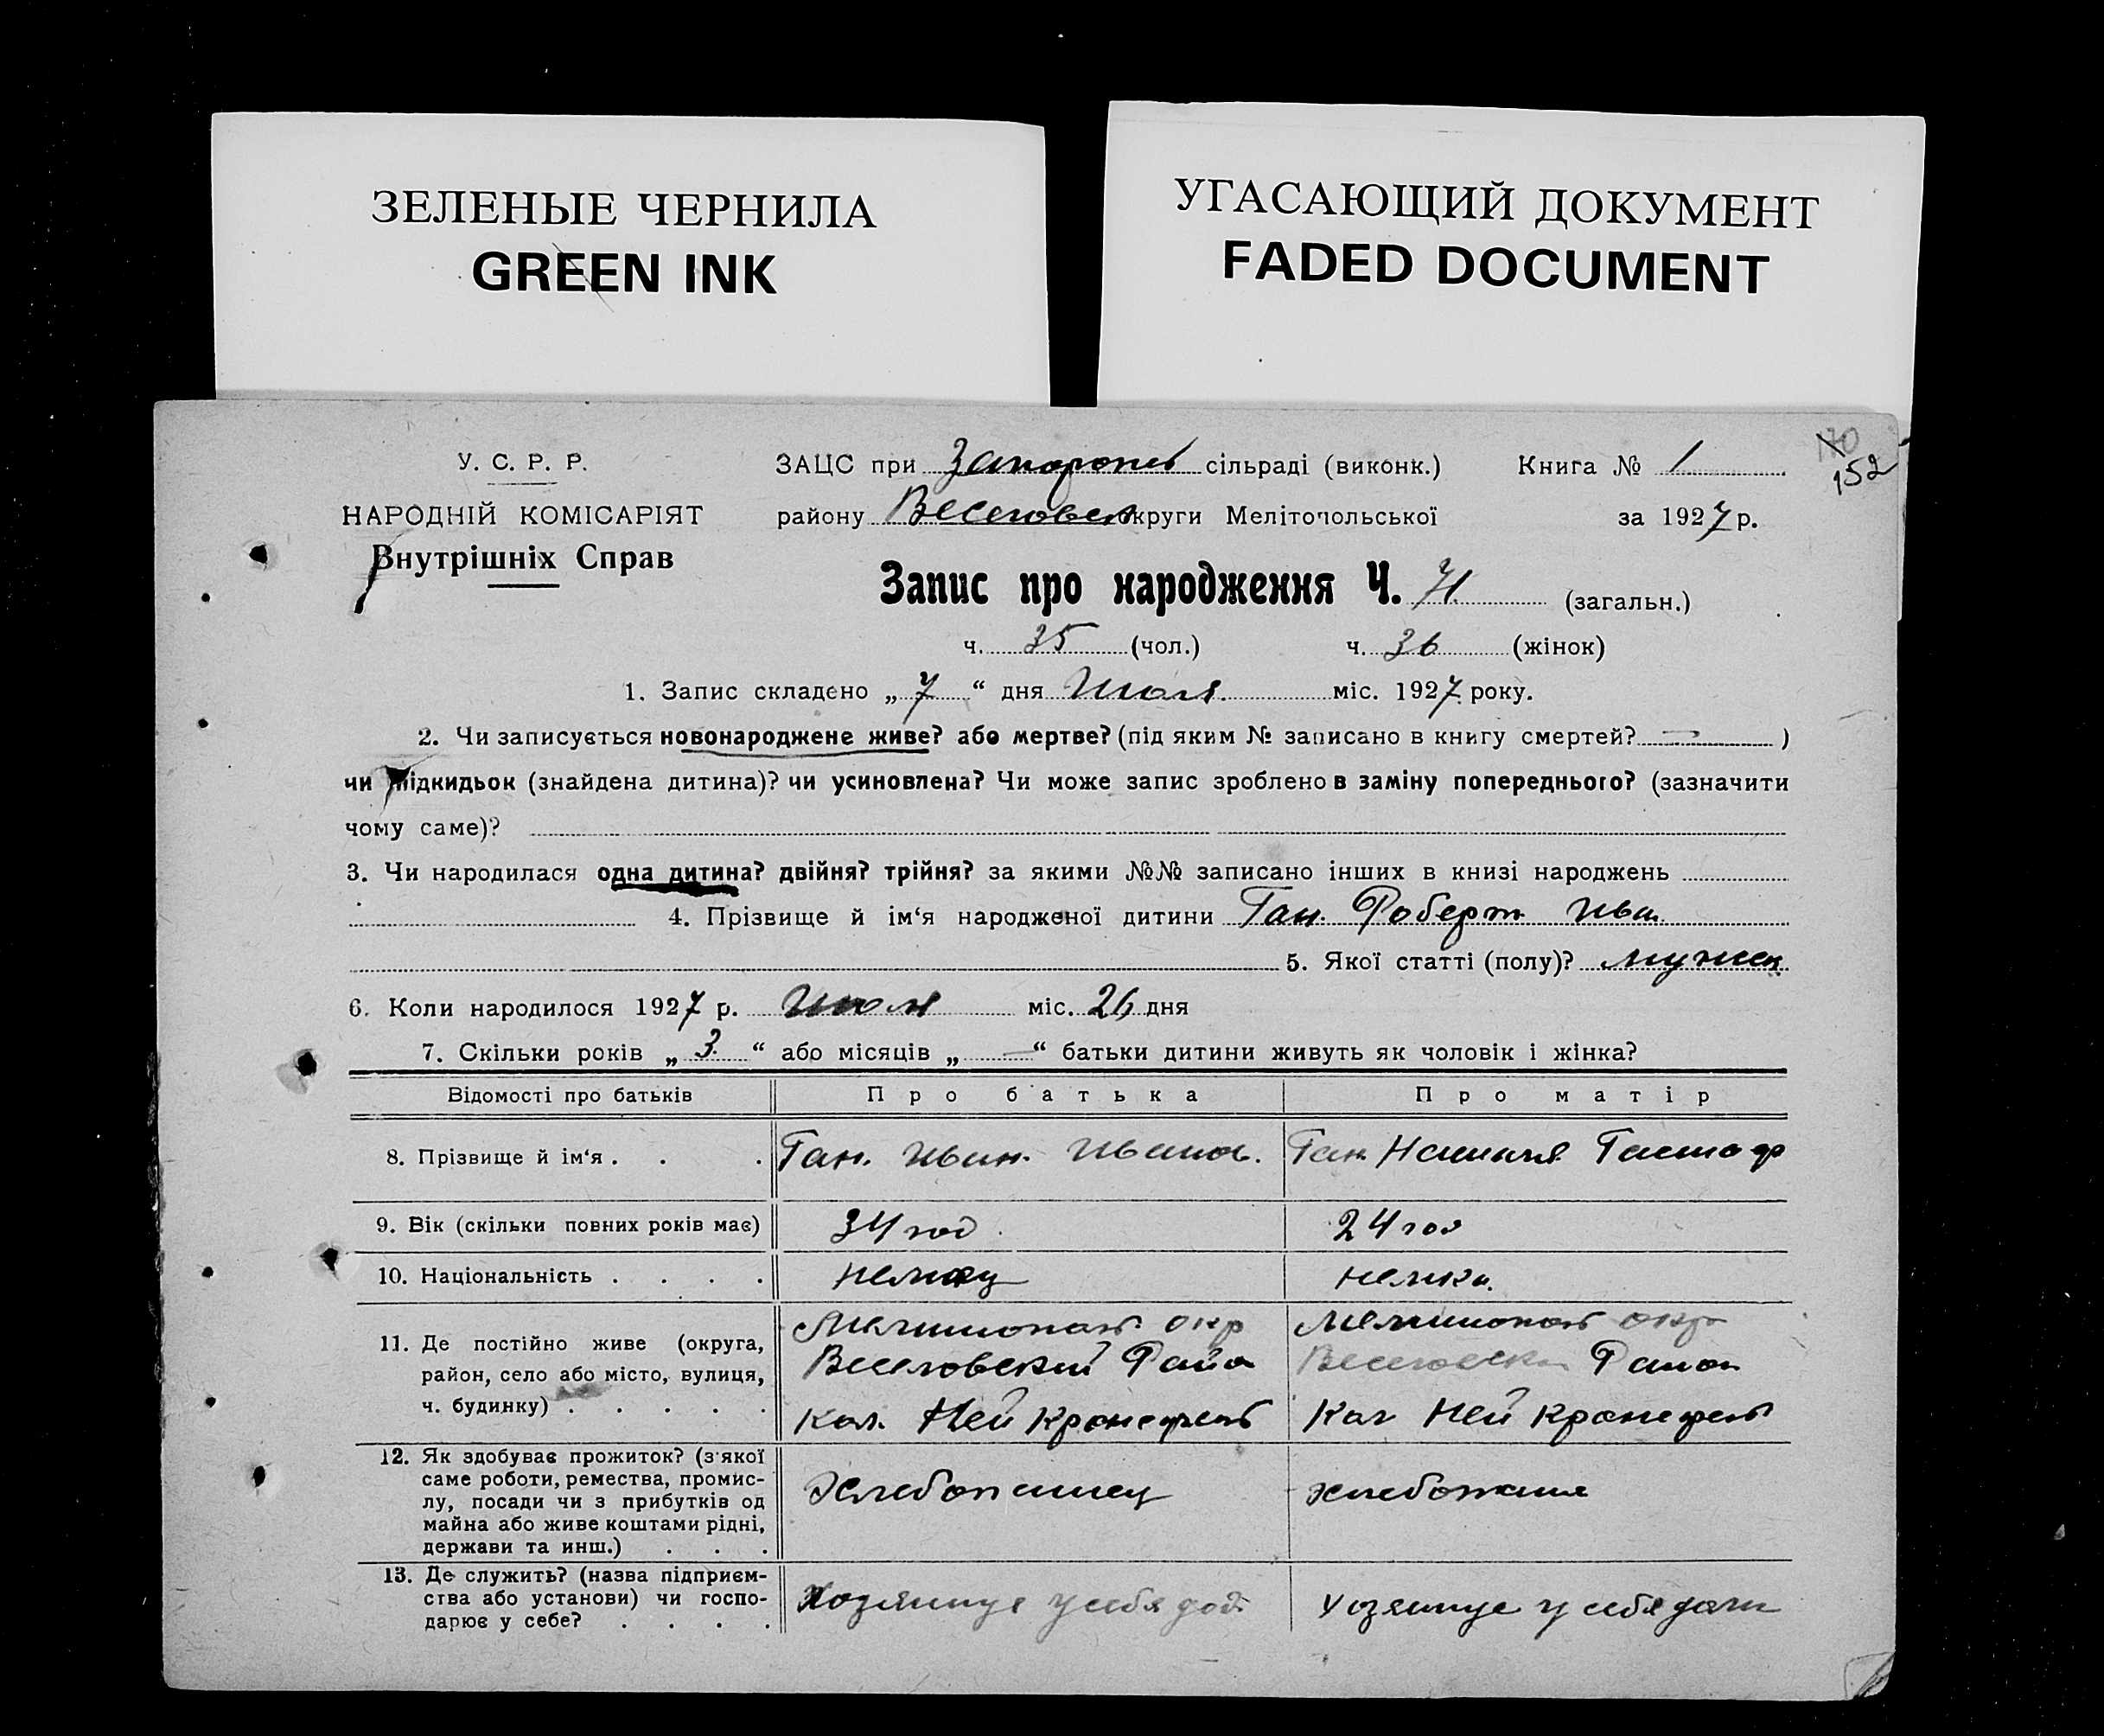 ЗЕЛЕНЫЕ ЧЕРНИЛА
GREEN INK
УГАСАЮЩИЙ ДОКУМЕНТ
FADED DOCUMENT
170
152
У. С. Р. Р.
НАРОДНІЙ КОМІСАРІЯТ
Внутрішніх Справ
ЗАЦС при сільраді (виконк.) Книга № 1
району Веселовск округи Мелітопольської за 1927 р.
Запис про народження Ч. 71 (загальн.)
ч. 35 (чол.) ч. 36 (жінок)
1. Запис складено „ 7 “ дня міс. 1927 року.
2. Чи записується новонароджене живе? або мертве? (під яким № записано в книгу смертей? — )
чи підкидьок (знайдена дитина)? чи усиновлена? Чи може запис зроблено в заміну попереднього? (зазначити
чому саме)?
3. Чи народилася одна дитина? двійня? трійня? за якими №№ записано інших в книзі народжень
4. Прізвище й ім‘я народженої дитини Ган. Роберт Иван.
5. Якої статті (полу)? мужск.
6. Коли народилося 1927 р. міс. 26 дня
7. Скільки років „ 3. “ або місяців „ — “ батьки дитини живуть як чоловік і жінка?
Відомості про батьків Про батька Про матір
8. Прізвище й ім‘я . . . Ган. Иван. Иванов. Ган Наталья Густаф
9. Вік (скільки повних років має) 34 год. 24 год
10. Національність . . . . немец немка.
11. Де постійно живе (округа,
район, село або місто, вулиця,
ч. будинку) . . . . .
Мелитопол окр Мелитопол окр
Веселовский Район Веселовски Район
Кол. Ней Кронсфельд Кол Ней Кронсфельд
12. Як здобуває прожиток? (з'якої
саме роботи, ремества, промис-
лу, посади чи з прибутків од
майна або живе коштами рідні,
держави та инш.) . . .
Хлебопашец
13. Де служить? (назва підприєм-
ства або установи) чи госпо-
дарює у себе? . . . .
у себя у себя